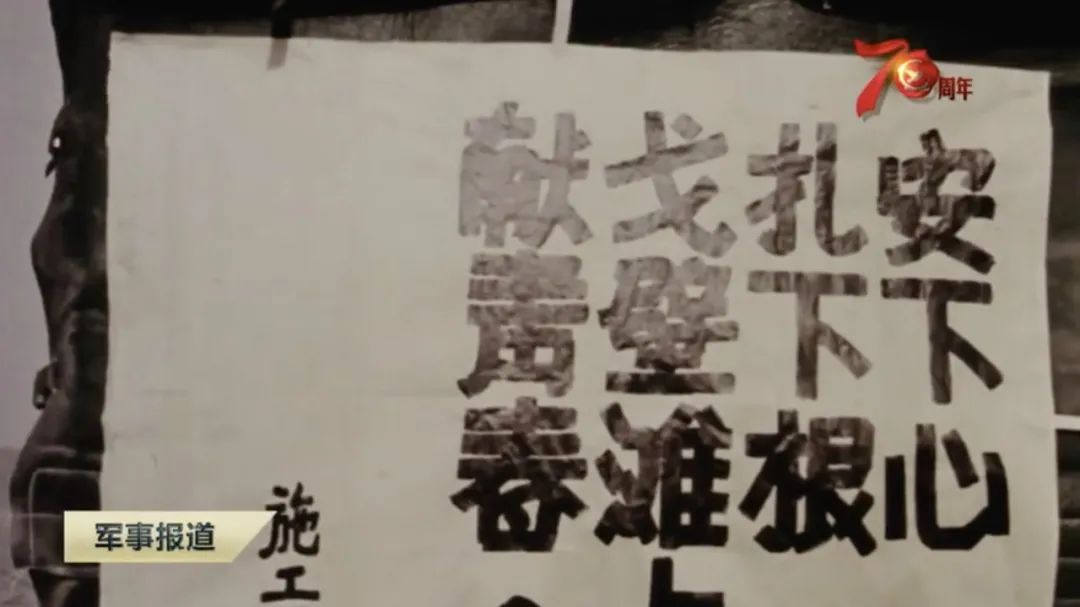 安下心
扎下根
戈壁滩上
献青春
施工
70周年
军事报道